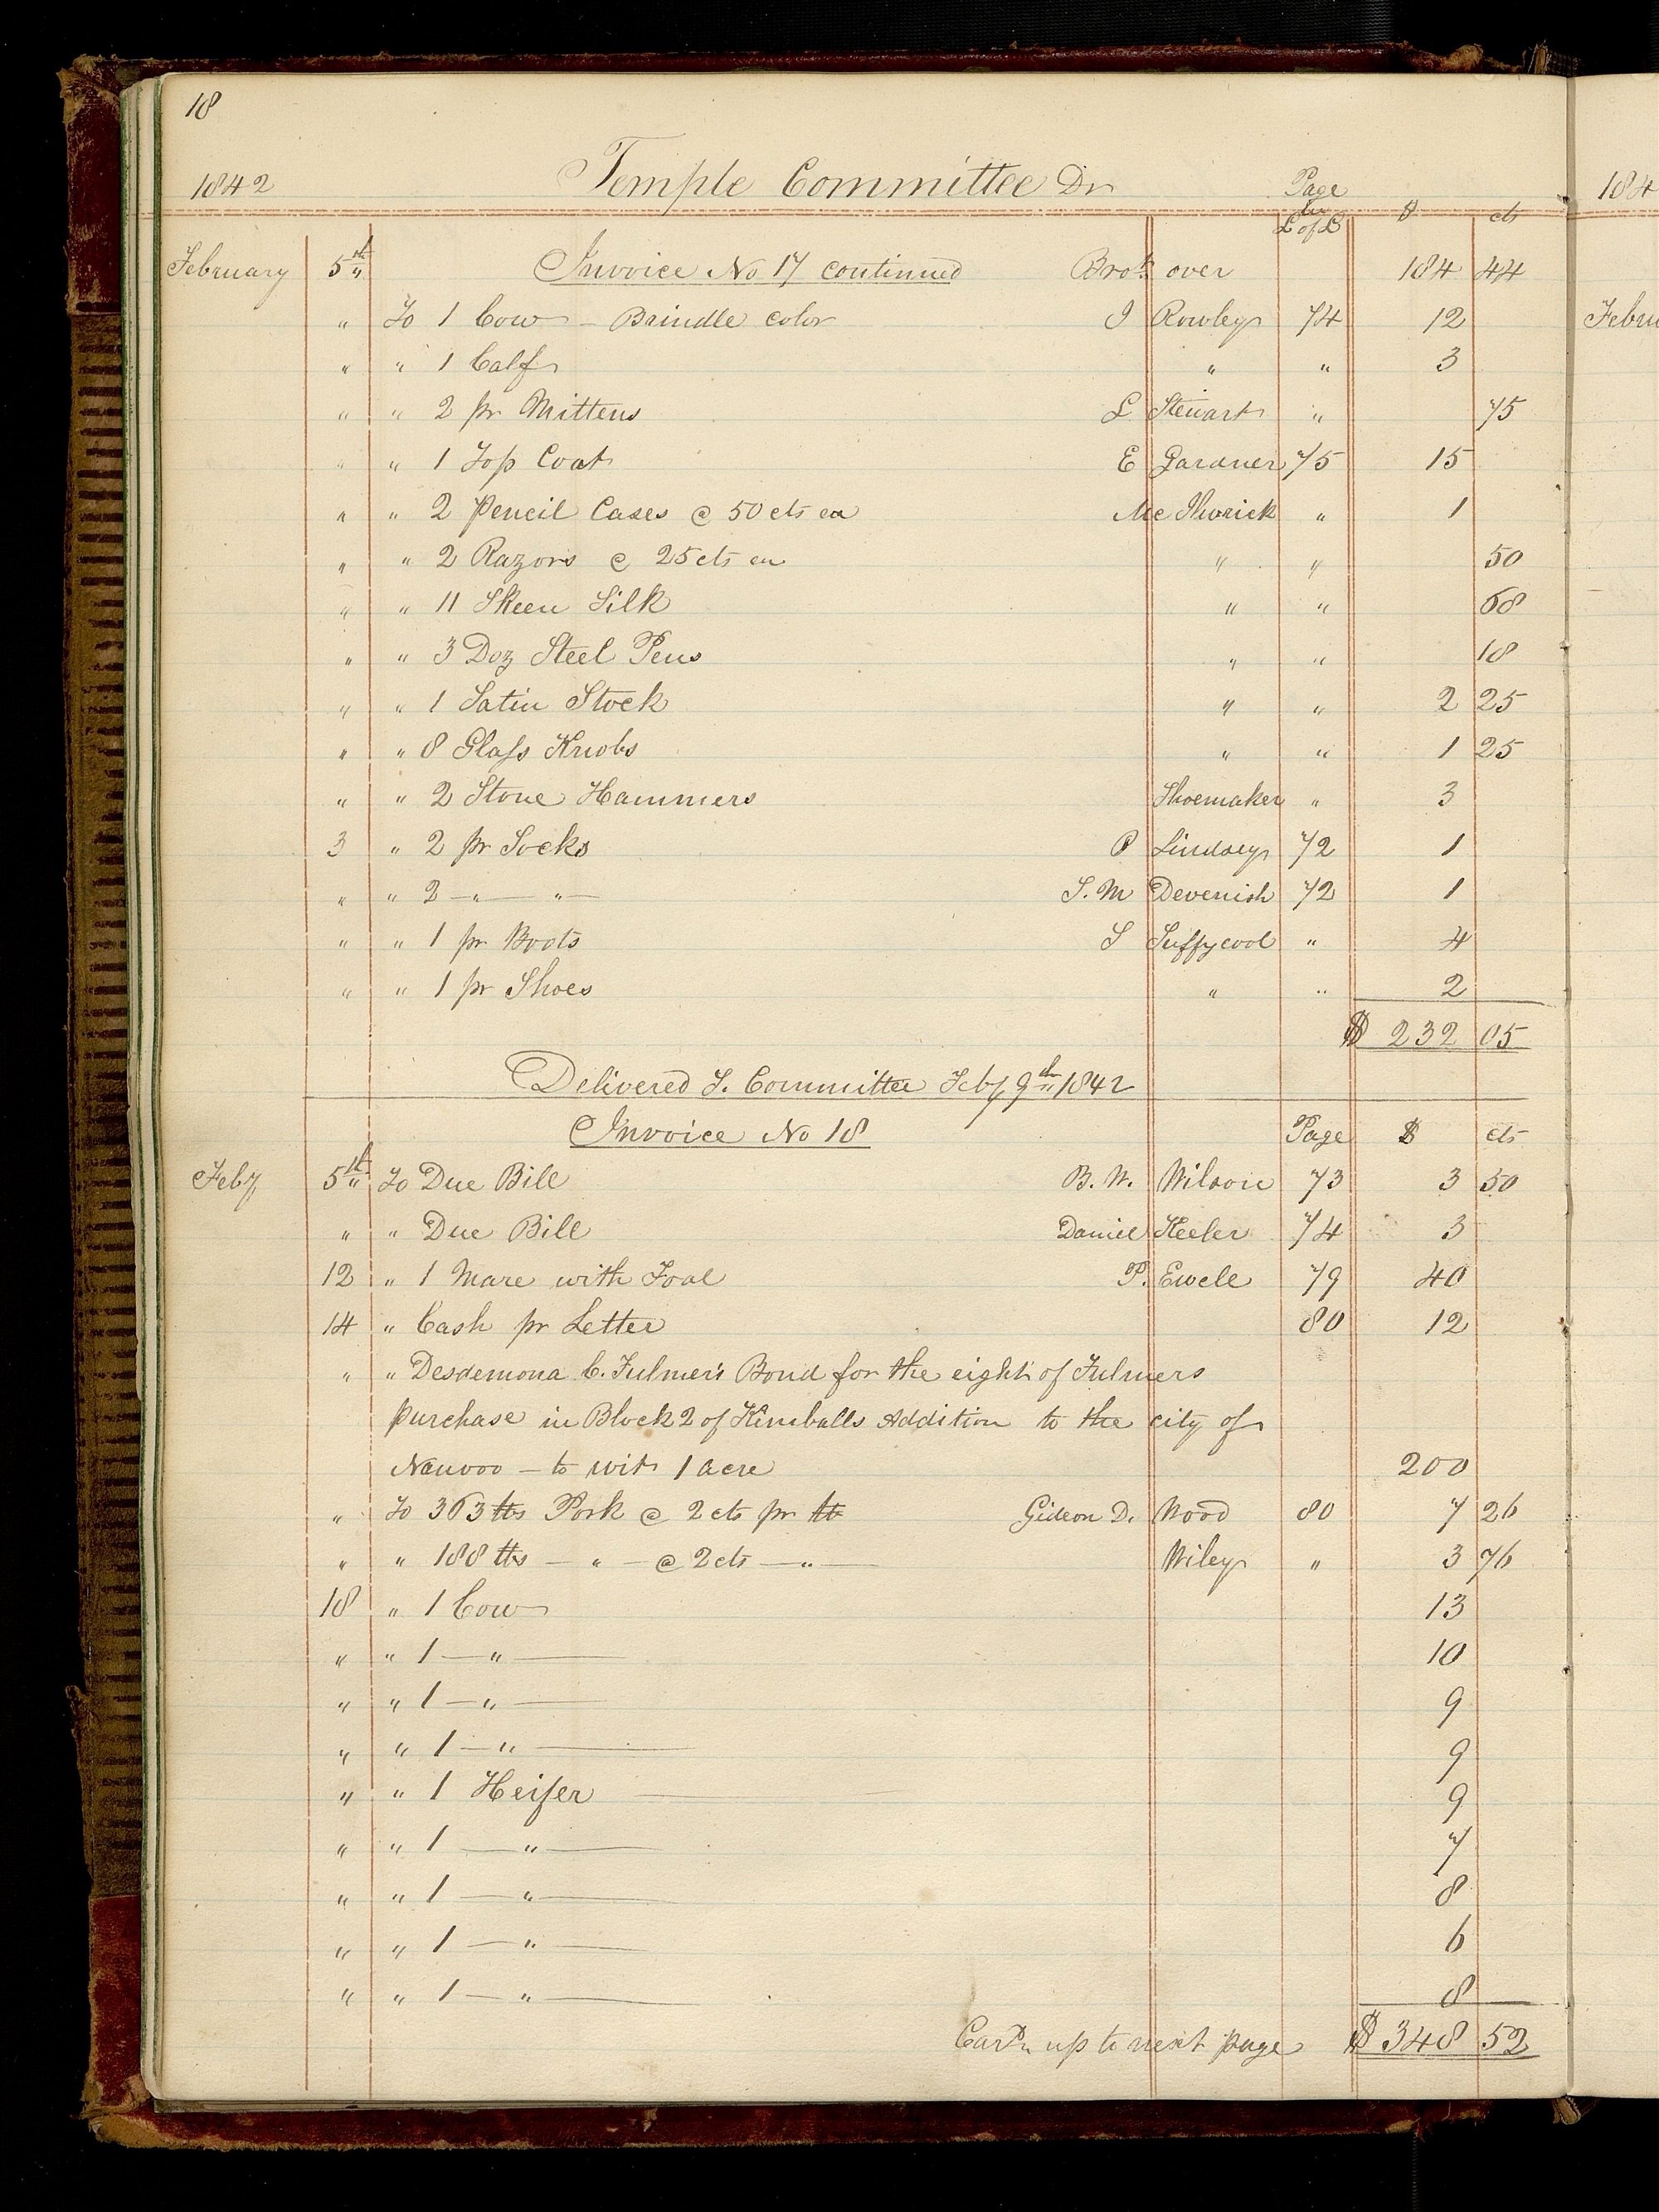 18
1842 Temple Committee Dr Page in L of L $ cts
184
February 5th Invoice No 17 continued Brot over 184 44
Febru
" To 1 Cow – Brindle color I Rowley 74 12
" " 1 Calf " " 3
" " 2 pr Mittens L Stewart " 75
" " 1 Top Coat E Gardner 75 15
" " 2 Pencil Cases @ 50 cts ea Mc " 1
" " 2 Razors @ 25 cts ea " " 50
" " 11 Skeen Silk " " 68
" " 3 Doz Steel Pens " " 18
" " 1 Satin Stock " " 2 25
" " 8 Glass Knobs " " 1 25
" " 2 Stone Hammers Shoemaker " 3
3 " 2 pr Socks P Lindsey 72 1
" " 2 – " – " – S. M Devenish 72 1
" " 1 pr Boots S " 4
" " 1 pr Shoes " " 2
$ 232 05
Delivered T. Committee Feby 9th 1842
Invoice No 18 Page $ cts
Feby 5th To Due Bill B. W. Wilson 73 3 50
" " Due Bill Daniel Keeler 74 3
12 " 1 Mare with Foal P. Ewele 79 40
14 " Cash pr Letter 80 12
" " Desdemona C. Fulmer's Bond for the eight of Fulmers
purchase in Block 2 of Kimballs Addition to the city of
Nauvoo – to wit 1 acre 200
" To 363 lbs Pork @ 2 cts pr lb Gideon D. Wood 80 7 26
" " 188 lbs – " – @ 2 cts – " – Wiley " 3 76
18 " 1 Cow 13
" " 1 – " – 10
" " 1 – " – 9
" " 1 – " – 9
" " 1 Heifer – 9
" " 1 – " – 7
" " 1 – " – 8
" " 1 – " – 6
" " 1 – " – 8
Card up to next page $ 348 52